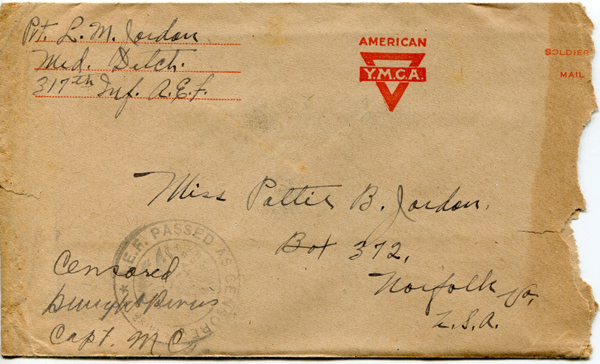 Pvt. L. M. Jordan
Med. Detch.
317th Inf. A.E.F.
AMERICAN
Y.M.C.A.
SOLDIER
MAIL
Miss Pattie B. Jordan.
Box 372,
Norfolk Va,
U.S.A.
A.E.F. PASSED AS CENSORED
Censored
Capt. M C